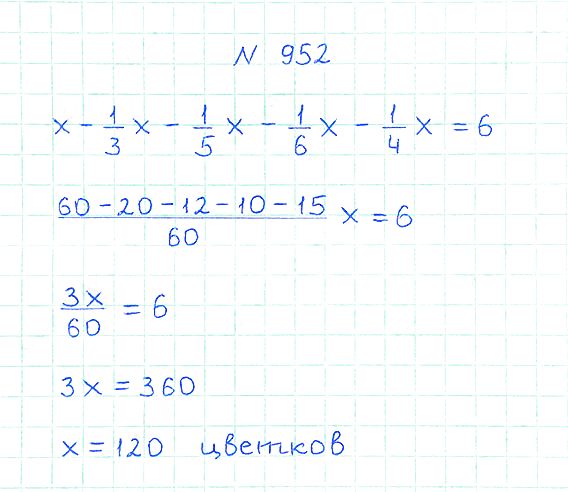 N 952
x - 1/3 x - 1/5 x - 1/6 x - 1/4 x = 6
(60 - 20 - 12 - 10 - 15)/60 x = 6
3x/60 = 6
3x = 360
x = 120 цветков